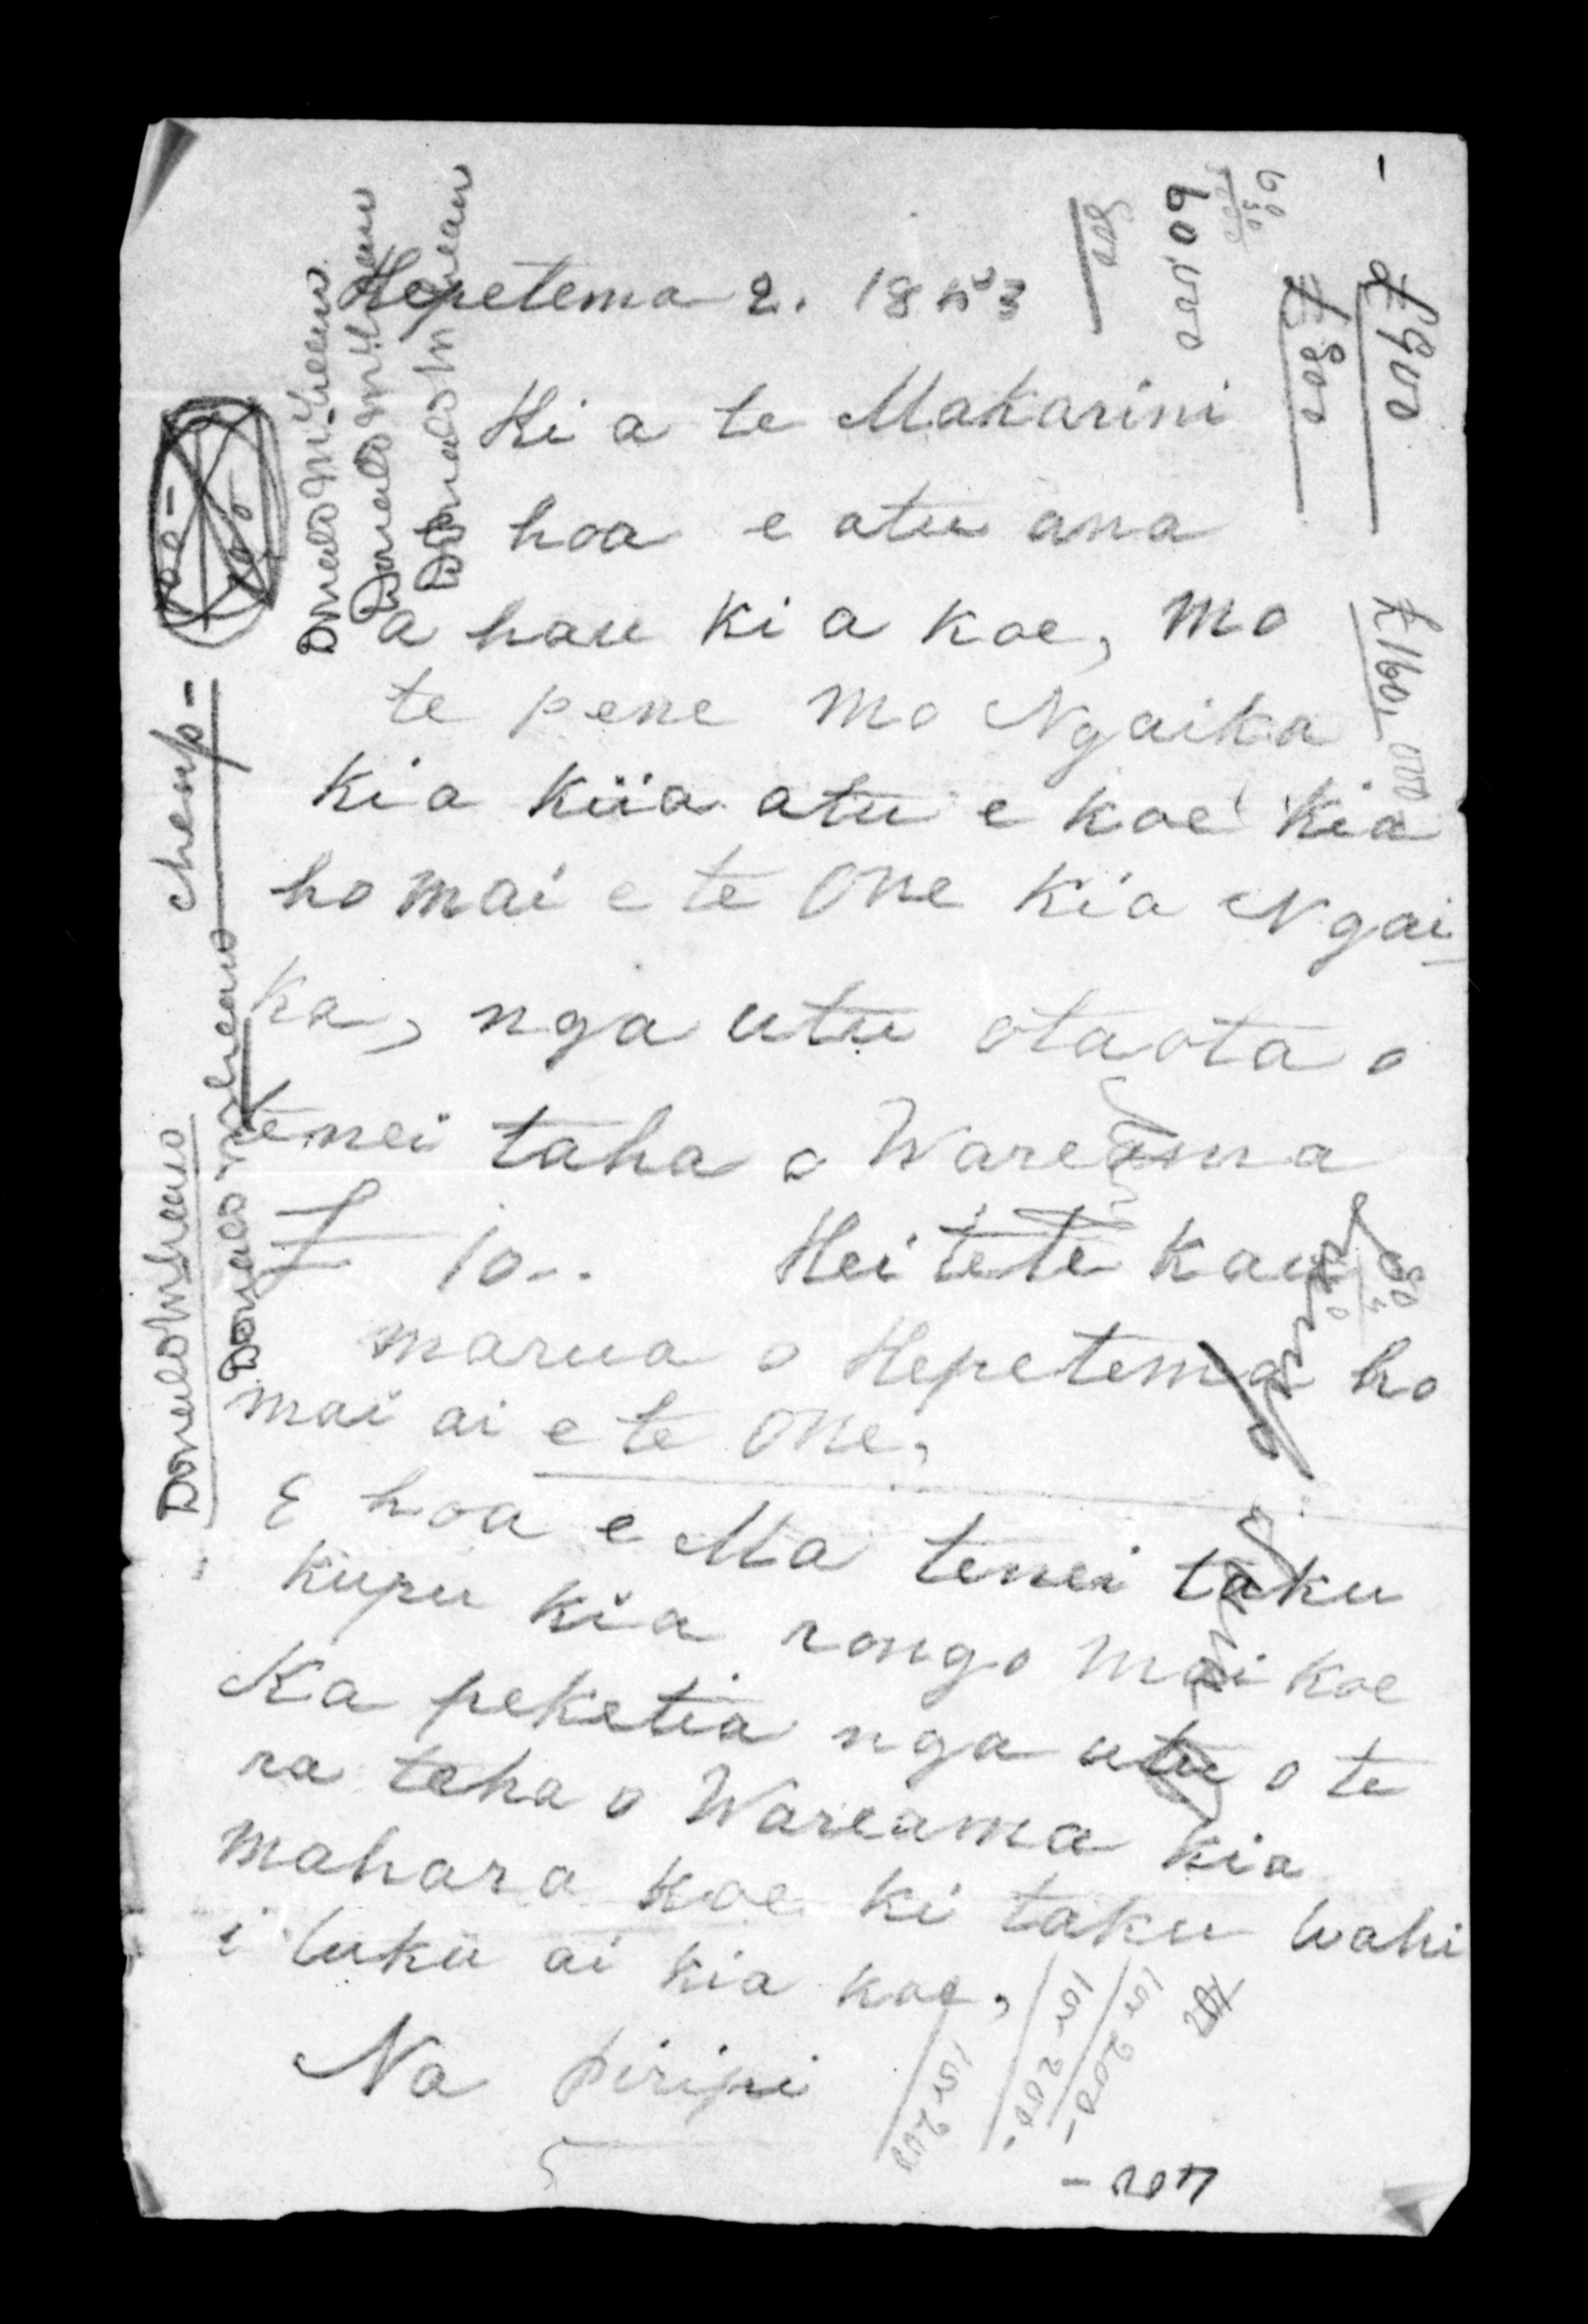 Hepetema 2. 1853
Ki a te Makarini
hoa e atu ana
a hau ki a koe, mo
te pene mo Ngaika
Kia kiia atu e koe kia
ho mai e te One kia Ngai-
ka, nga utu otaota o
tenei taha o Wareama
£ 10..  Hei te te kau
marua o Hepetema ho
mai ai e te One,
E hoa e Ma tenei taku
kupu kia rongo mai koe
Ka peketia nga utu o te
ra taha o Wareama kia
mahara koe ki taku wahi
i tuku ai kia koe,
Na piripi
Donald McLean
Donald McLean
Donald McLean
Donald McLean
Donald McLean
£900
£800
800
60,000
£160,000
200
200
200
400-